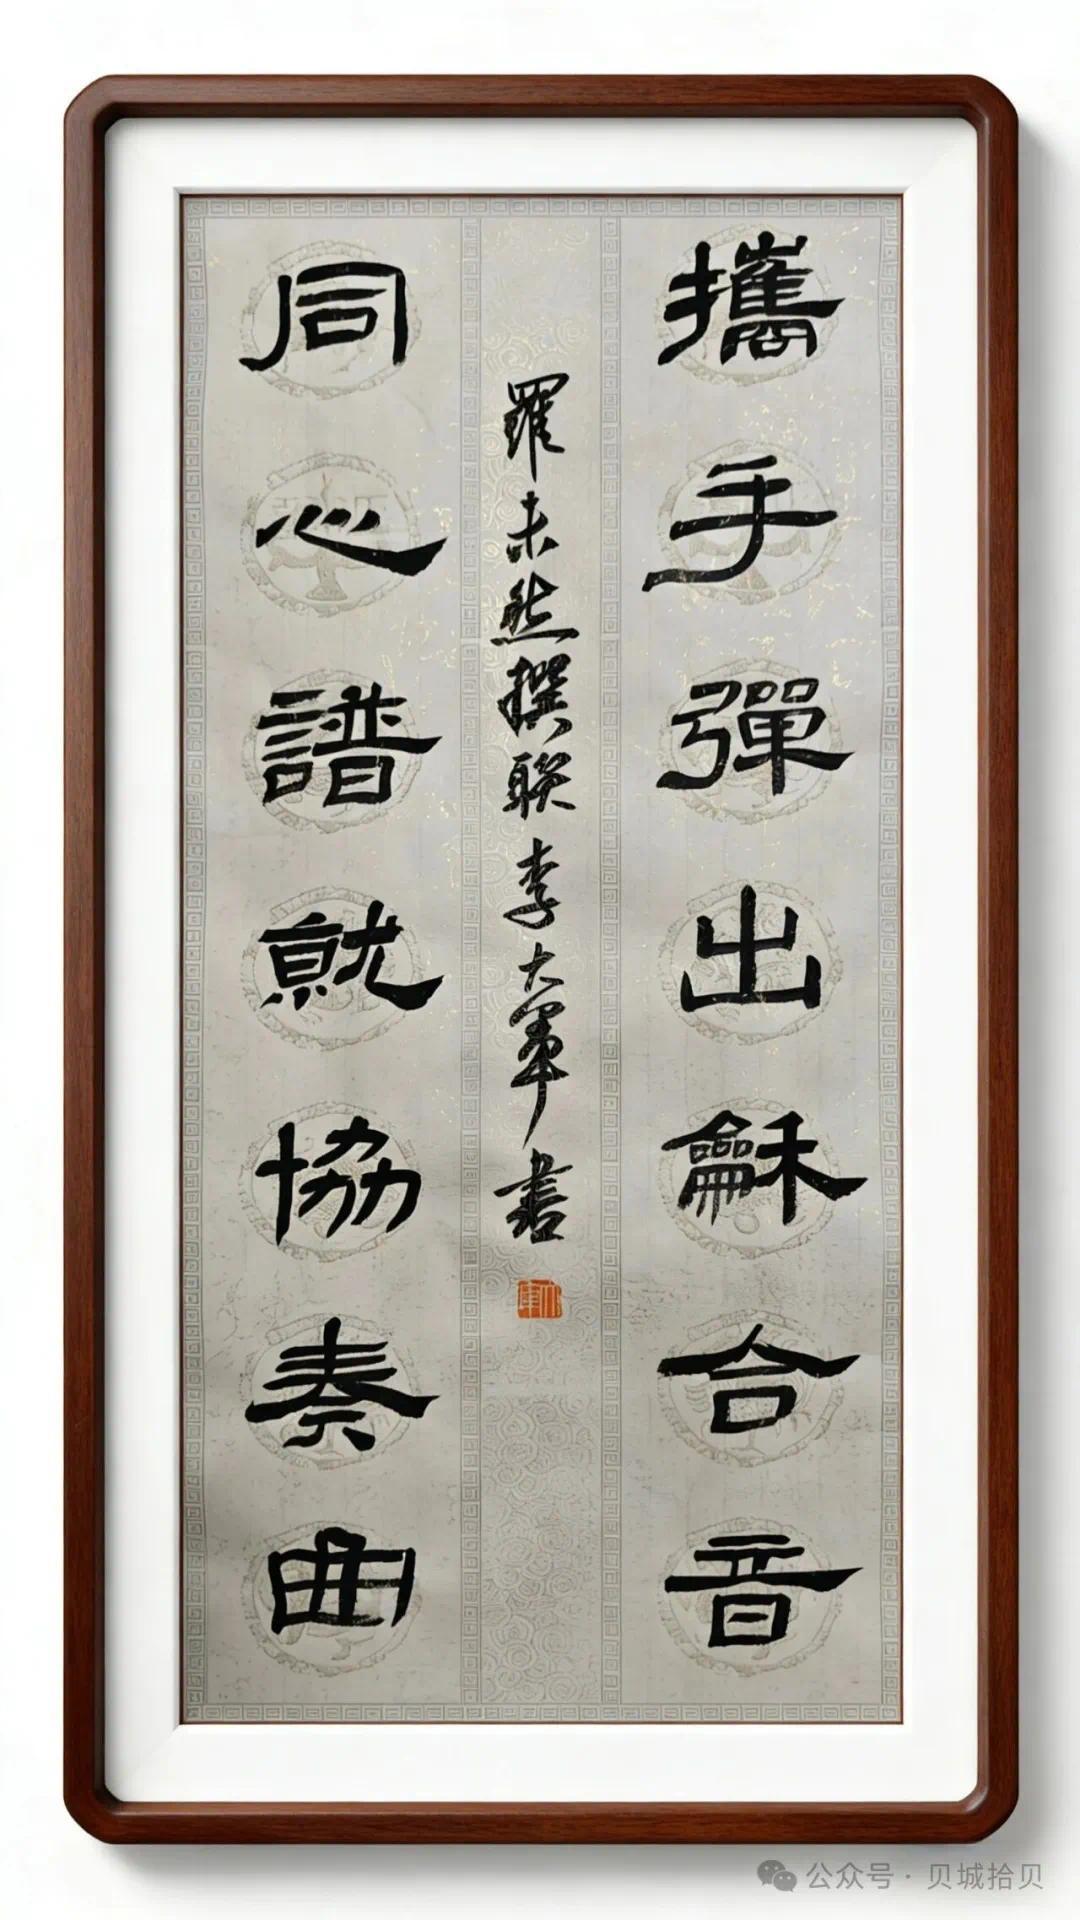 攜手彈出龢合音
羅未然撰联李大軍书
同心譜就協奏曲
公众号·贝城拾贝